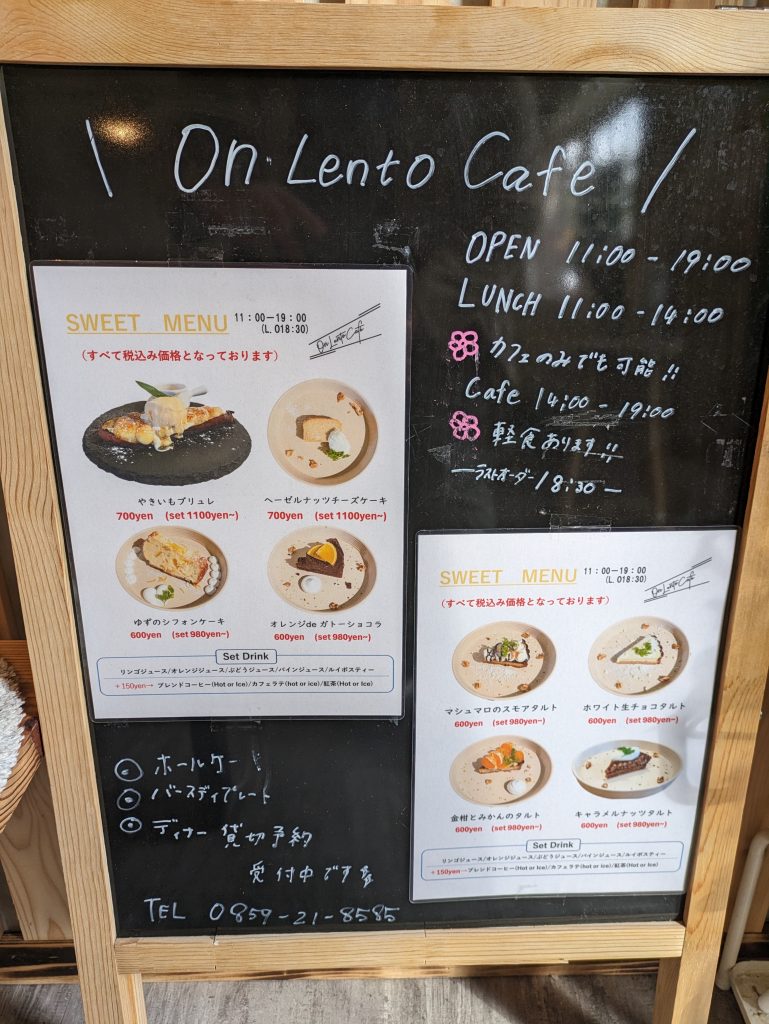 \ On Lento Cafe /
OPEN 11:00 - 19:00
LUNCH 11:00 - 14:00
カフェのみでも可能!!
Cafe 14:00 - 19:00
軽食あります!!
ーラストオーダー 18:30ー
SWEET MENU 11：00ー19：00
(L. O18:30)
On Lento Cafe
（すべて税込み価格となっております）
やきいもブリュレ
700yen (set 1100yen~)
ヘーゼルナッツチーズケーキ
700yen (set 1100yen~)
ゆずのシフォンケーキ
600yen (set 980yen~)
オレンジde ガトーショコラ
600yen (set 980yen~)
Set Drink
リンゴジュース/オレンジジュース/ぶどうジュース/パインジュース/ルイボスティー
＋150yen→ ブレンドコーヒー(Hot or Ice)/カフェラテ(hot or ice)/紅茶(Hot or Ice)
SWEET MENU 11：00ー19：00
(L. O18:30)
On Lento Cafe
（すべて税込み価格となっております）
マシュマロのスモアタルト
600yen (set 980yen~)
ホワイト生チョコタルト
600yen (set 980yen~)
金柑とみかんのタルト
600yen (set 980yen~)
キャラメルナッツタルト
600yen (set 980yen~)
Set Drink
リンゴジュース/オレンジジュース/ぶどうジュース/パインジュース/ルイボスティー
＋150yen→ブレンドコーヒー(Hot or Ice)/カフェラテ(hot or ice)/紅茶(Hot or Ice)
ホールケー
バースディプレート
ディナー 貸切予約
受付中です
TEL 0859-21-8585